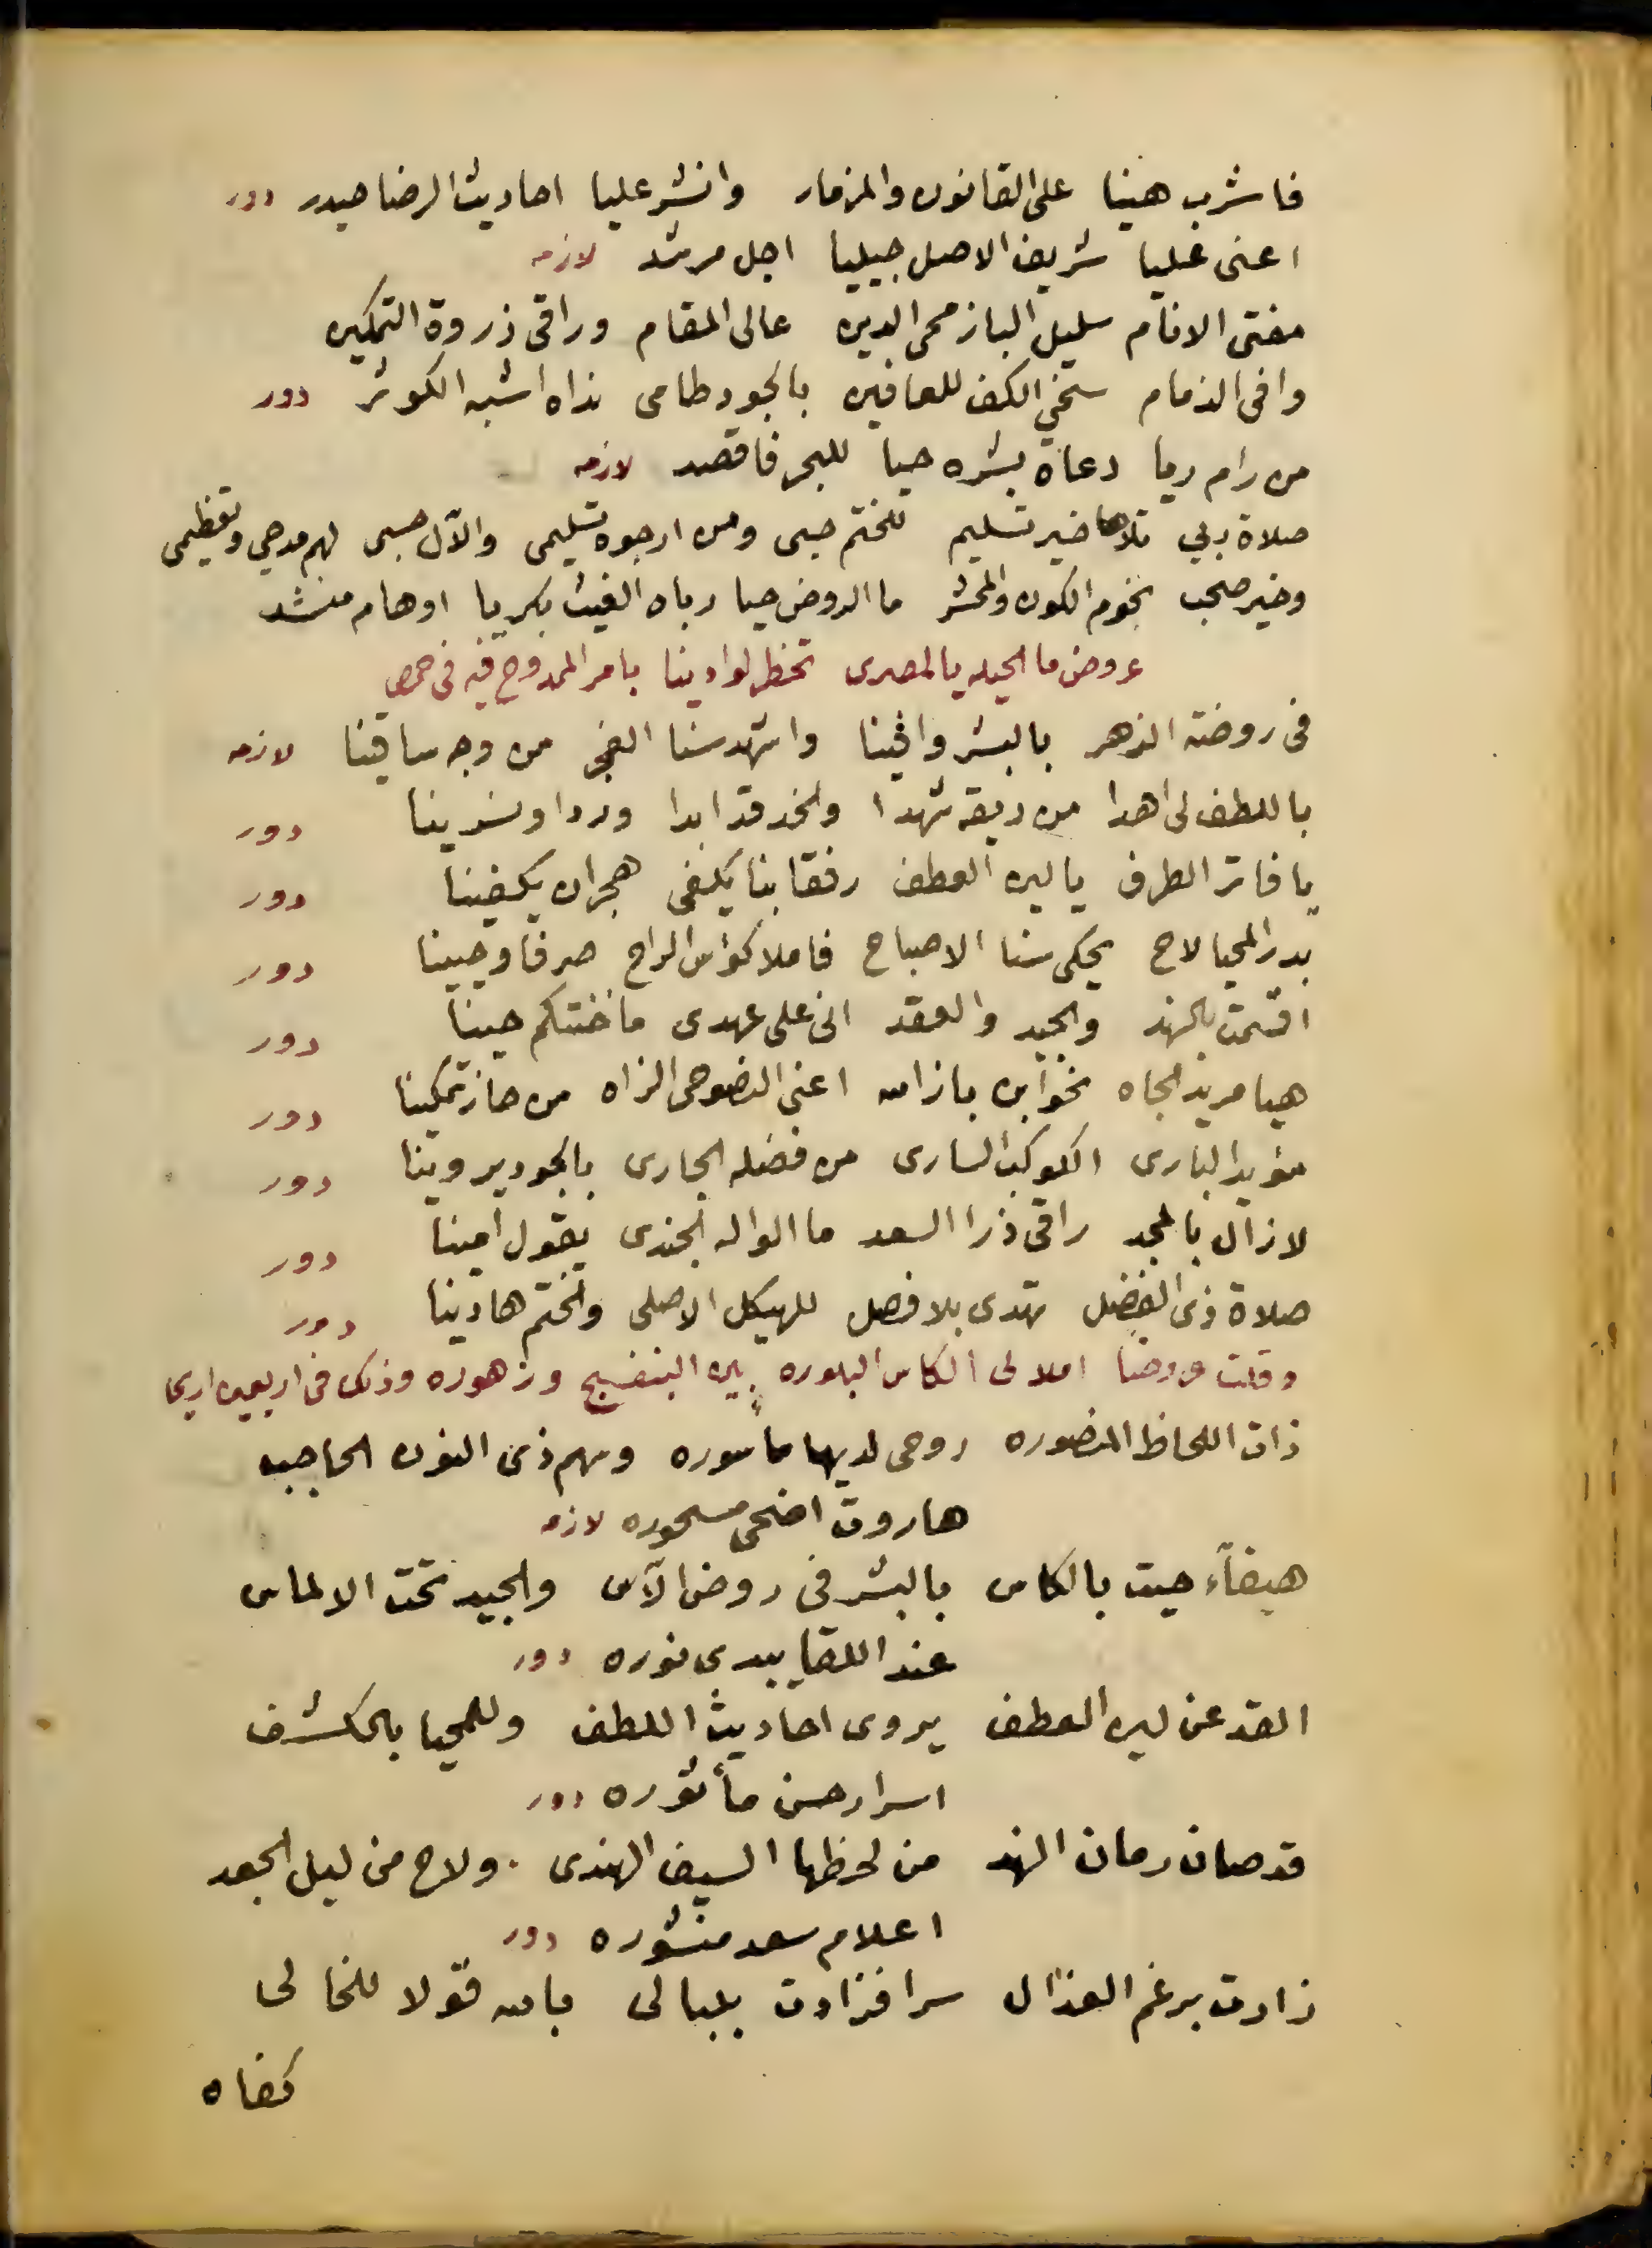 فاشرب هنيا على القانون والمزمار وانشر عليا احاديث الرضا حيدر دور
اعنى عليا شريف الاصل جيليا اجل مرشد لازمه
مفتى الانام سليل الباز محى الدين عالى المقام وراقى ذروة التمكين
وافى الذمام سخي الكف للعافين بالجود طامى نداه اشبه الكوثر دور
من رام ريا دعاه بشره حيا للبحر فاقصد لازمه
صلاة ربي تلاها خير تسليم للختم حبى ومن ارجوه تسليمى والآل حسبى لهم مدحي وتعظيمى
وخير صحب نجوم الكون والمحشر ما الروض حيا رباه الغيث بكريا اوهام منشد
عروض ما الحيله يالمصرى تخطر لوادينا بامر الممدوح فيه فى حمص
فى روضة الزهر بالبشر وافينا واشهد سنا الفجر من وجه ساقينا لازمه
باللطف لى اهدا من ريقه شهدا والخد قد ابدا وردا ونسرينا دور
يا فاتر الطرف يا لين العطف رفقا بنا يكفى هجران يكفينا دور
بدر المحيا لاح يحكى سنا الاصباح فاملا كؤس الراح صرفا وحيينا دور
اقسمت بالنهد والجيد والعقد انى على عهدى ما خنتكم حينا دور
هيا مريد الجاه نحو ابن باز الله اعنى النصوحى الزاه من حاز تمكينا دور
مؤيد البارى الكوكب السارى من فضله الجارى بالجود يروينا دور
لازال بالمجد راقى ذرا السعد ما الواله الجندى يقول امينا دور
صلاة ذى الفضل تهدى بلا فصل للهيكل الاصلى والختم هادينا دور
وقلت عروضا املا لى الكاس البلوره بين البنفسج وزهوره وذلك فى اربعين اريحا
ذات اللحاظ المنصوره روحى لديها مأسوره وسهم ذى النون الحاجب
هاروت اضحى مسحوره لازمه
هيفآء حيت بالكاس بالبشر فى روض الآس والجيد تحت الالماس
عند اللقا يبدى نوره دور
القد عن لين العطف يروى احاديث اللطف وللمحيا بالكشف
اسرار حسن مأثوره دور
قد صان رمان النهد من لحظها السيف الهندى ولاح من ليل الجعد
اعلام سعد منشوره دور
زارت برغم العذال سرا فزادت بلبالى بالله قولا للخالى
كفاه